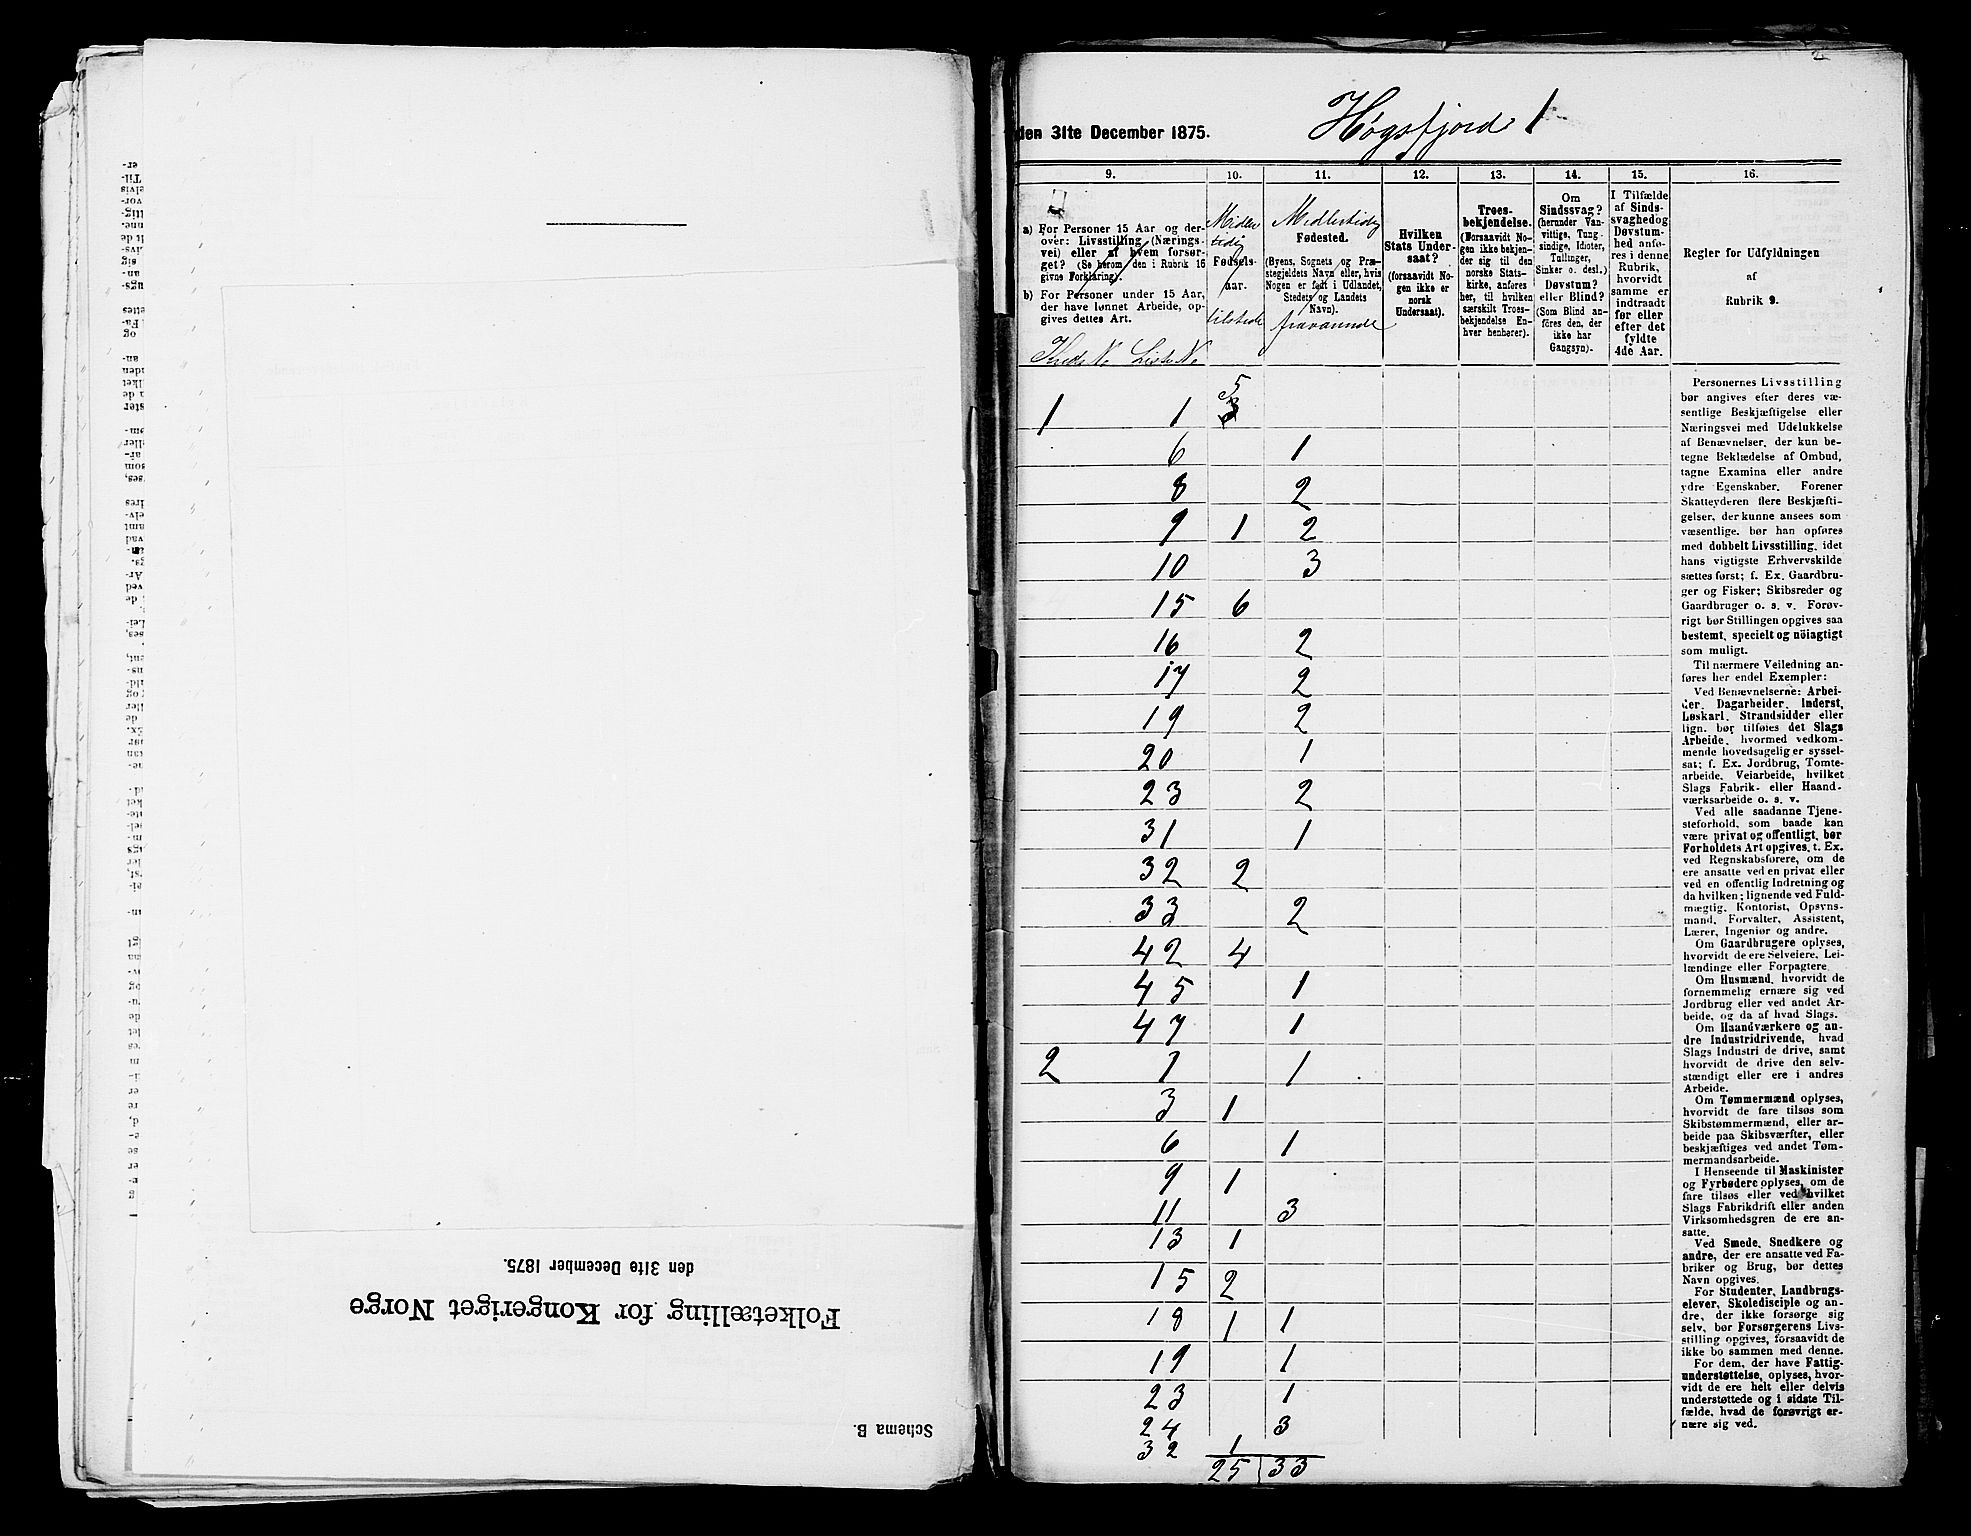 Høgsfjord 1
den 31te December 1875.
9.
10.
11.
12.
13.
14.
15.
16.
a) For Personer 15 Aar og der-
over: Livsstilling (Nærings-
vei) eller af hvem forsør-
get? (Se herom den i Rubrik 16
givne Forklaring).
b) For Personer under 15 Aar,
der have lønnet Arbeide, op-
gives dettes Art.
Kreds No Liste No
Midler
tidig
Fødsels-
aar.
tilstede
Midlertidig
Fødested.
(Byens, Sognets og Præ-
stegjeldets Navn eller, hvis
Nogen er født i Udlandet,
Stedets og Landets
Navn).
fraværende
Hvilken
Stats Under-
saat?
(forsaavidt No-
gen ikke er
norsk
Undersaat).
Troes-
bekjendelse.
(Forsaavidt No-
gen ikke bekjen-
der sig til den
norske Stats-
kirke, anføres
her, til hvilken
særskilt Troes-
bekjendelse En-
hver henhører).
Om
Sindssvag?
(herunder Van-
vittige, Tung-
sindige, Idioter,
Tullinger,
Sinker o. desl.)
Døvstum?
eller Blind?
(Som Blind an-
føres den, der
ikke har
Gangsyn).
I Tilfælde
af Sinds-
svaghed og
Døvstum-
hed anfø-
res i denne
Rubrik,
hvorvidt
samme er
indtraadt
før eller
efter det
fyldte
4de Aar.
Regler for Udfyldningen
af
Rubrik 9.
5
1 1 3
6 1
8 2
9 1 2
10 3
15 6
16 2
17 2
19 2
20 1
23 2
31 1
32 2
33 2
42 4
45 1
47 1
2 1 1
3 1
6 1
9 1
11 3
13 1
15 2
18 1 1
19 1
23 1
24 3
32 1
25 33
Personernes Livsstilling
bør angives efter deres væ-
sentlige Beskjæftigelse eller
Næringsvei med Udelukkelse
af Benævnelser, der kun be-
tegne Beklædelse af Ombud,
tagne Examina eller andre
ydre Egenskaber. Forener
Skatteyderen flere Beskjæfti-
gelser, der kunne ansees som
væsentlige, bør han opføres
med dobbelt Livsstilling, idet
hans vigtigste Erhvervskilde
sættes først; f. Ex. Gaardbru-
ger og Fisker; Skibsreder og
Gaardbruger o. s. v. Forøv-
rigt bør Stillingen opgives saa
bestemt, specielt og nöiagtigt
som muligt.
Til nærmere Veiledning an-
føres her endel Exempler:
Ved Benævnelserne: Arbei-
der, Dagarbeider, Inderst,
Løskarl, Strandsidder eller
lign. bør tilføies det Slags
Arbeide, hvormed vedkom-
mende hovedsagelig er syssel-
sat; f. Ex. Jordbrug, Tomte-
arbeide, Veiarbeide, hvilket
Slags Fabrik- eller Haand-
værksarbeide o. s. v.
Ved alle saadanne Tjene-
steforhold, som baade kan
være privat og offentligt, bør
Forholdets Art opgives, t. Ex.
ved Regnskabsførere, om de
ere ansatte ved en privat eller
ved en offentlig Indretning og
da hvilken; lignende ved Fuld-
mægtig, Kontorist, Opsyns-
mand, Forvalter, Assistent,
Lærer, Ingeniør og andre.
Om Gaardbrugere oplyses,
hvorvidt de ere Selveiere, Lei-
lændinge eller Forpagtere.
Om Husmænd, hvorvidt de
fornemmelig ernære sig ved
Jordbrug eller ved andet Ar-
beide, og da af hvad Slags.
Om Haandværkere og an-
dre Industridrivende, hvad
Slags Industri de drive, samt
hvorvidt de drive den selv-
stændigt eller ere i andres
Arbeide.
Om Tømmermænd oplyses,
hvorvidt de fare tilsøs som
Skibstømmermænd, eller ar-
beide paa Skibsværfter, eller
beskjæftiges ved andet Tøm-
mermandsarbeide.
I Henseende til Maskinister
og Fyrbødere oplyses, om de
fare tilsøs eller ved hvilket
Slags Fabrikdrift eller anden
Virksomhedsgren de ere an-
satte.
Ved Smede, Snedkere og
andre, der ere ansatte ved Fa-
briker og Brug, bør dettes
Navn opgives.
For Studenter, Landbrugs-
elever, Skoledisciple og an-
dre, der ikke forsørge sig
selv, bør Forsørgerens Livs-
stilling opgives, forsaavidt de
ikke bo sammen med denne.
For dem, der have Fattig-
understøttelse, oplyses, hvor-
vidt de ere helt eller delvis
understøttede og i sidste Til-
fælde, hvad de forøvrigt er-
nære sig ved.
Schema B.
Folketælling for Kongeriget Norge
den 31te December 1875.